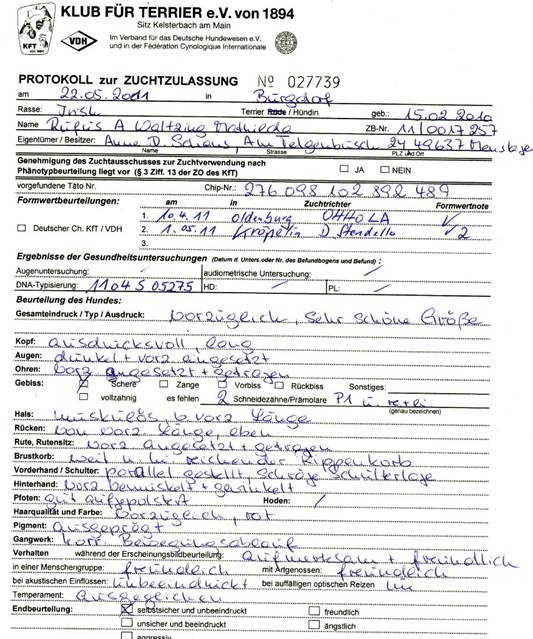 KLUB FÜR TERRIER e.V. von 1894
Sitz Kelsterbach am Main
Im Verband für das Deutsche Hundewesen e.V.
und in der Fédération Cynologique Internationale
KFT
VDH
PROTOKOLL zur ZUCHTZULASSUNG No 027739
am 22.05.2011 in Burgdorf
Rasse: Irish Terrier Rüde / Hündin geb.: 15.02.2010
Name Rufus A Waltzing Mathilda ZB-Nr. 11/0017257
Eigentümer / Besitzer: Anne D. Schans, Am 24 49637 Menslage
Name Straße PLZ und Ort
Genehmigung des Zuchtausschusses zur Zuchtverwendung nach
Phänotypbeurteilung liegt vor (§ 3 Ziff. 13 der ZO des KfT) JA NEIN
vorgefundene Täto Nr. Chip-Nr.: 276 098 102 892 489
Formwertbeurteilungen: am in Zuchtrichter Formwertnote
1. 10.4.11 Oldenburg OHHOLA V
Deutscher Ch. KfT / VDH 2. 1.05.11 Kröpelin D Stendello V2
3.
Ergebnisse der Gesundheitsuntersuchungen (Datum d. Unters.oder Nr. des Befundbogens und Befund) :
Augenuntersuchung: / audiometrische Untersuchung: /
DNA-Typisierung: 1104 S 05275 HD: / PL: /
Beurteilung des Hundes:
Gesamteindruck / Typ / Ausdruck: Vorzüglich, sehr schöne Größe
Kopf: ausdrucksvoll, lang
Augen: dunkel + vorz. eingesetzt
Ohren: vorz. angesetzt + getragen
Gebiss: Schere Zange Vorbiss Rückbiss Sonstiges:
vollzahnig es fehlen 2 Schneidezähne/Prämolare P1 u. re + li
(genau bezeichnen)
Hals: muskulös, b. vorz. Länge
Rücken: von vorz. Länge, eben
Rute, Rutensitz: vorz. angesetzt + getragen
Brustkorb: weit u. reichender Rippenkorb
Vorderhand / Schulter: parallel gestellt, schräge Schulterlage
Hinterhand: vorz. bemuskelt + gewinkelt
Pfoten: gut aufgepolstert Hoden: /
Haarqualität und Farbe: Vorzüglich, rot
Pigment: ausgeprägt
Gangwerk: korr. Bewegungsablauf
Verhalten während der Erscheinungsbildbeurteilung: aufmerksam + freundlich
in einer Menschengruppe: freundlich mit Artgenossen: freundlich
bei akustischen Einflüssen: unbeeindruckt bei auffälligen optischen Reizen
Temperament: ausgeglichen
Endbeurteilung: selbstsicher und unbeeindruckt freundlich
unsicher und beeindruckt ängstlich
aggressiv